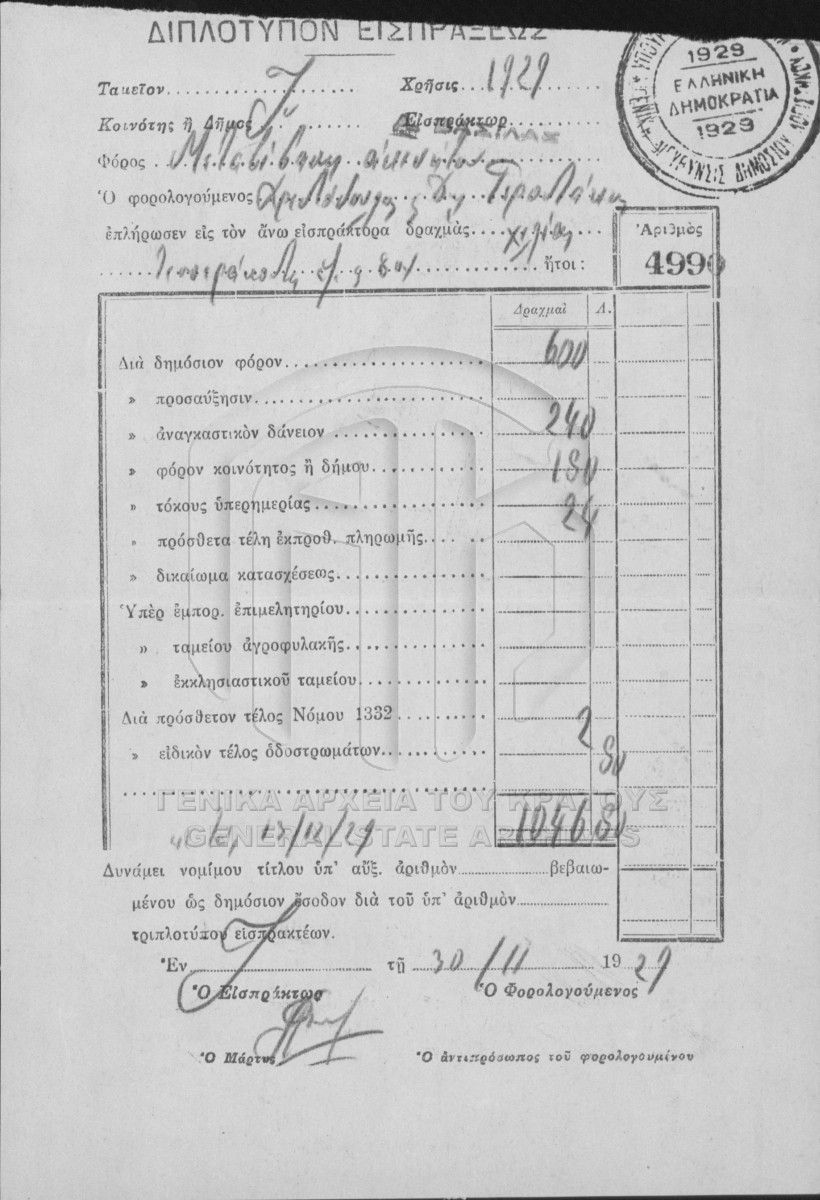 ΔΙΠΛΟΤΥΠΟΝ ΕΙΣΠΡΑΞΕΩΣ
1929
ΕΛΛΗΝΙΚΗ
ΔΗΜΟΚΡΑΤΙΑ
1929
Ταμεῖον Χρῆσις 1929
Κοινότης ἢ Δῆμος Εἰσπράκτωρ
Φόρος
Ὁ φορολογούμενος
ἐπλήρωσεν εἰς τὸν ἄνω εἰσπράκτορα δραχμὰς χιλίας
ἤτοι:
Ἀριθμὸς
4990
Δραχμαὶ Λ.
Διὰ δημόσιον φόρον 600
» προσαύξησιν
» ἀναγκαστικὸν δάνειον 240
» φόρον κοινότητος ἢ δήμου 180
» τόκους ὑπερημερίας 24
» πρόσθετα τέλη ἐκπροθ. πληρωμῆς
» δικαίωμα κατασχέσεως
Ὑπὲρ ἐμπορ. ἐπιμελητηρίου
» ταμείου ἀγροφυλακῆς
» ἐκκλησιαστικοῦ ταμείου
Διὰ πρόσθετον τέλος Νόμου 1332 2
» εἰδικὸν τέλος ὁδοστρωμάτων 80
ΓΕΝΙΚΑ ΑΡΧΕΙΑ ΤΟΥ ΚΡΑΤΟΥΣ
GENERAL STATE ARCHIVES
1046 80
Δυνάμει νομίμου τίτλου ὑπ' αὔξ. ἀριθμὸν βεβαιω-
μένου ὡς δημόσιον ἔσοδον διὰ τοῦ ὑπ' ἀριθμὸν
τριπλοτύπου εἰσπρακτέων.
Ἐν τῇ 30/11 1929
Ὁ Εἰσπράκτωρ Ὁ Φορολογούμενος
Ὁ Μάρτυς Ὁ ἀντιπρόσωπος τοῦ φορολογουμένου